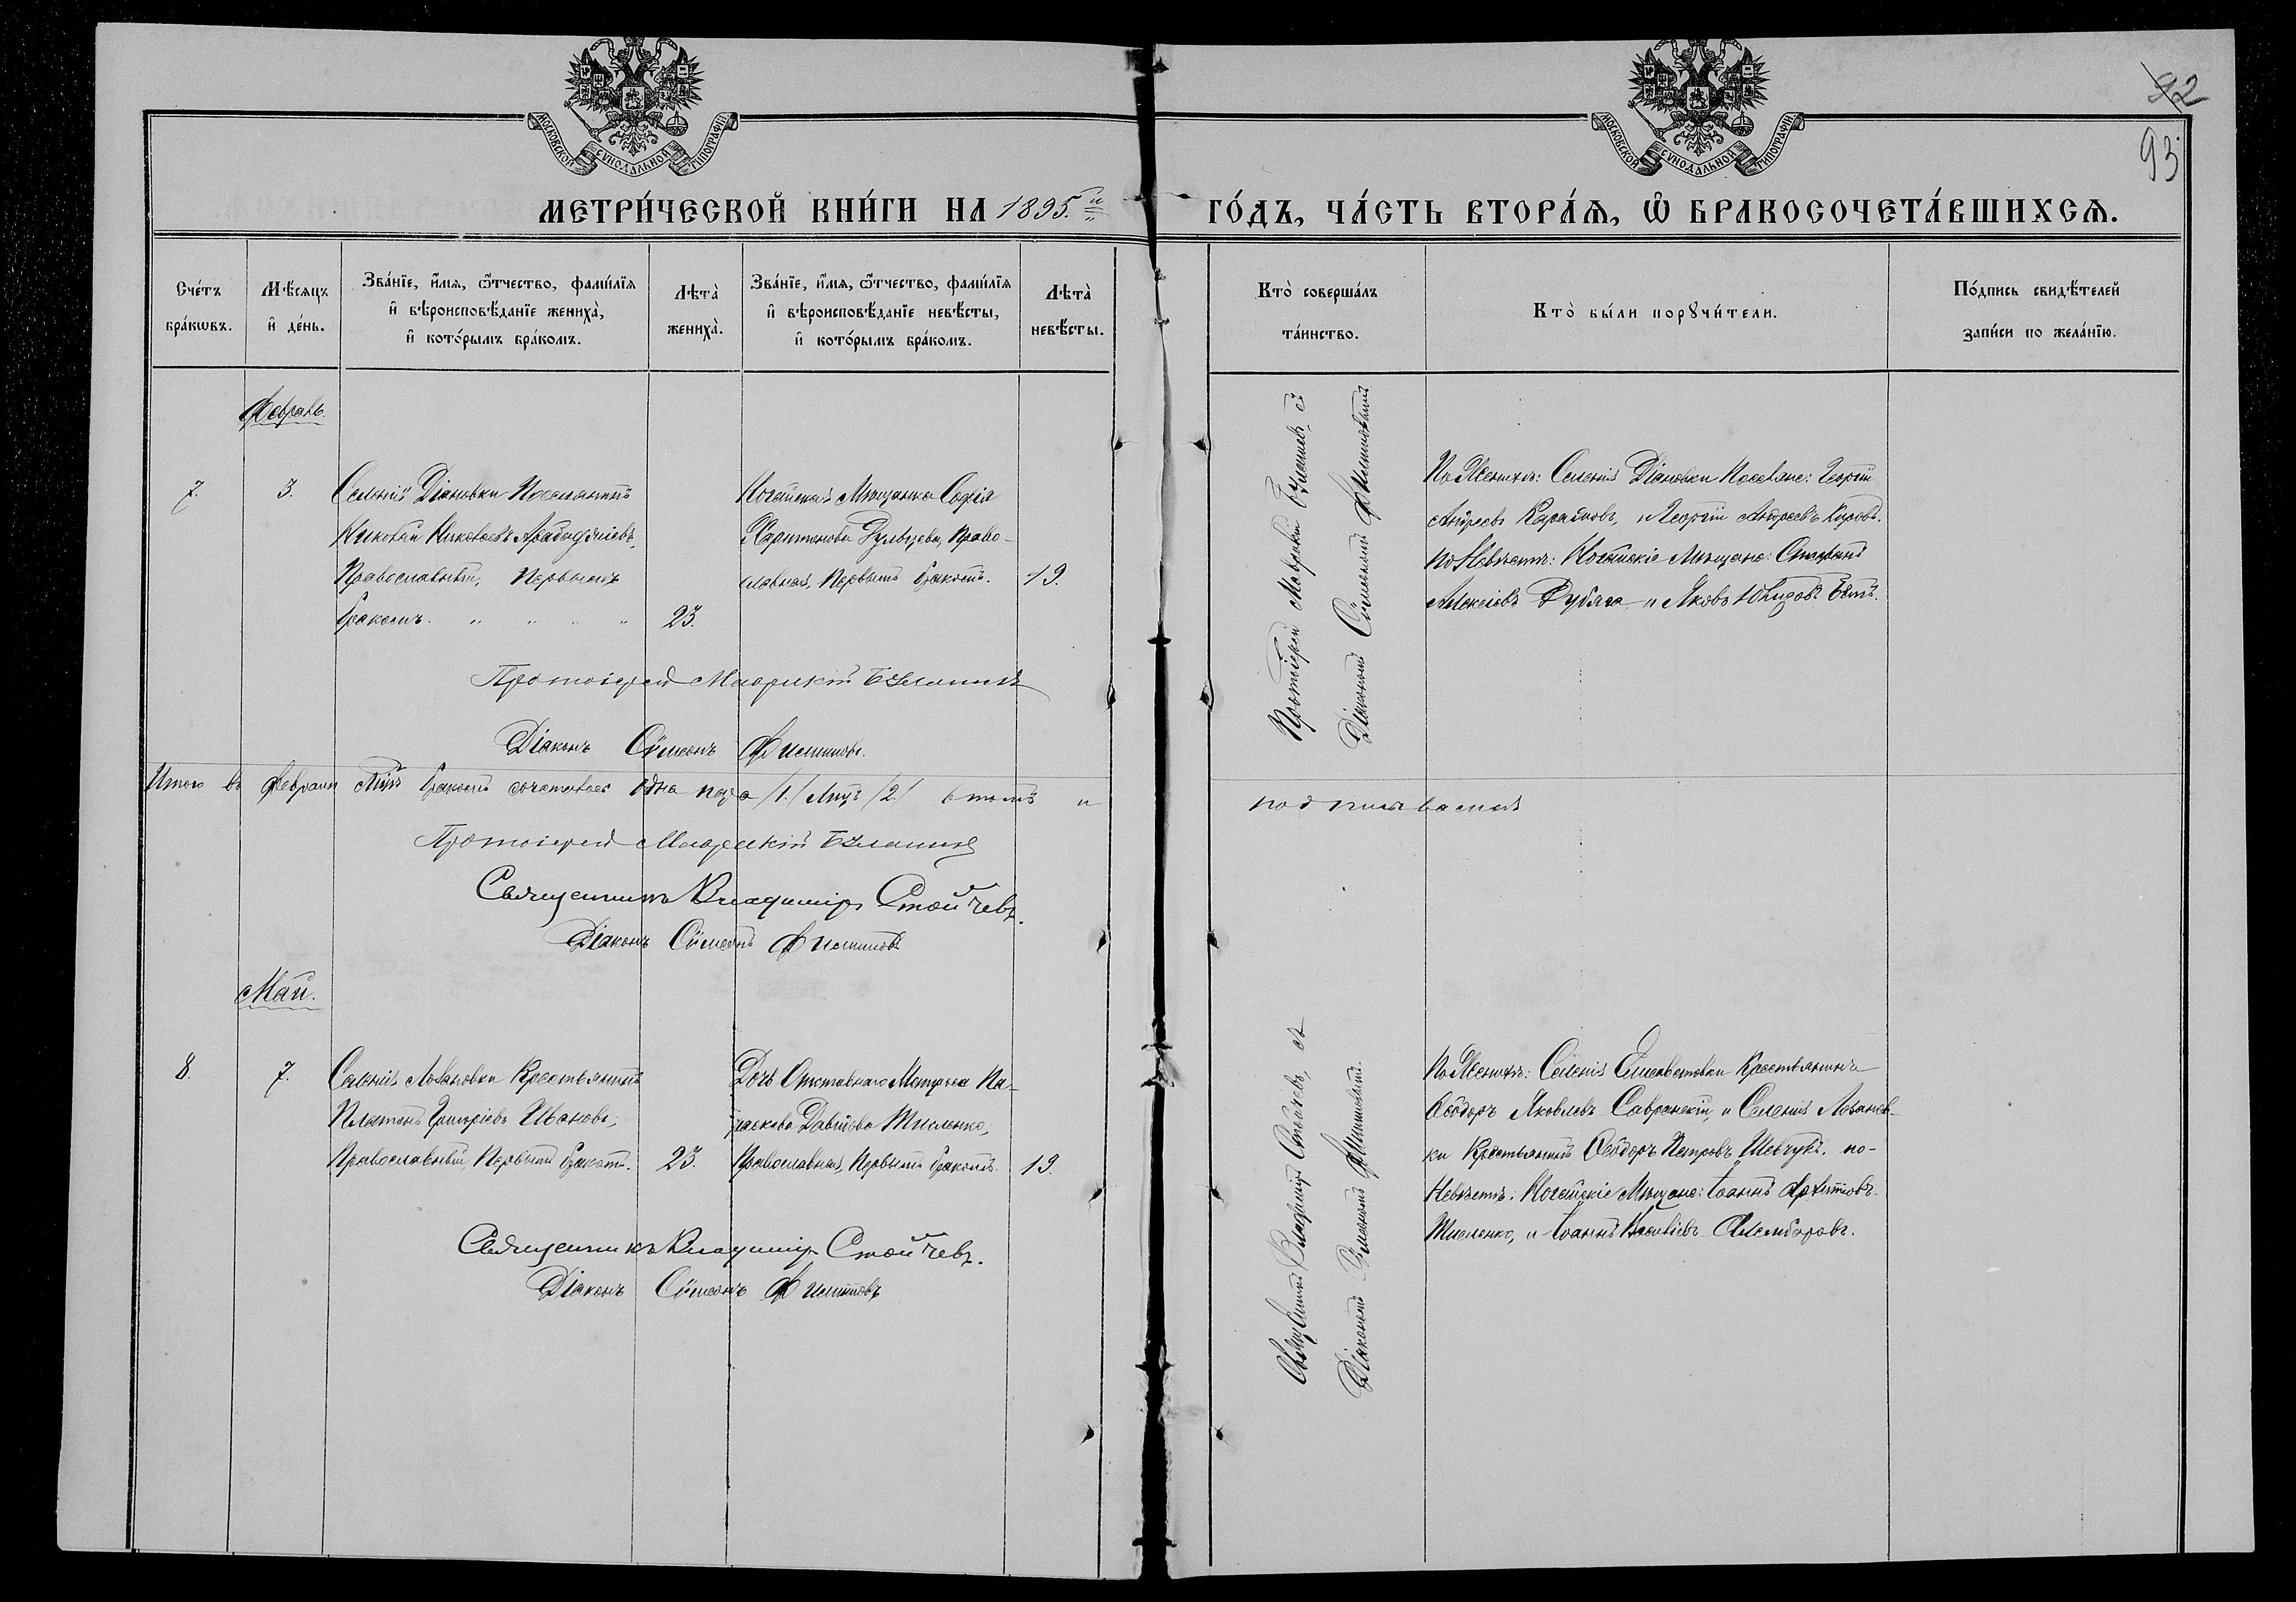 МОСКОВСКОЙ СѴНОДАЛЬНОЙ ТИПОГРАФІИ
МОСКОВСКОЙ СѴНОДАЛЬНОЙ ТИПОГРАФІИ
92
93
МЕТРИ́ЧЕСКОЙ КНИ́ГИ НА 1895.й
ГО́ДЪ, ЧА́СТЬ ВТОРА́Ѧ, Ѽ БРАКОСОЧЕТА́ВШИХСѦ.
Сче́тъ бра́кѡвъ.
Мѣ́сяцъ и де́нь.
Зва́нїе, и́мѧ, ѻ҆́тчество, фами́лїѧ и вѣроисповѣ́данїе жениха̀, и кото́рымъ бра́комъ.
Лѣта̀ жениха̀.
Зва́нїе, и́мѧ, ѻ҆́тчество, фами́лїѧ и вѣроисповѣ́данїе невѣ́сты, и кото́рымъ бра́комъ.
Лѣта̀ невѣ́сты.
Кто̀ соверша́лъ та́инство.
Кто̀ бы́ли порꙋчи́тели.
По́дпись свидѣ́телей за́писи по жела́нїю.
Февраль.
7.
3.
Селенія Діановки Поселянинъ
Николай Николаевъ Арабаджіевъ,
Православный, Первымъ
бракомъ. " " " "
23.
Ногайская Мѣщанка Софія
Харитонова Дульцева, Право-
славная, Первымъ бракомъ.
19.
Протоіерей Маврикій съ
Діакономъ Сѵмеономъ Филипповымъ
По Женихѣ: Селенія Діановки Поселяне: Георгій
Андреевъ и Георгій Андреевъ Кировъ.
По Невѣстѣ: Ногайскіе Мѣщане: Стефанъ
Алексіевъ и Яковъ
Протоіерей Маврикій
Діаконъ Сѵмеонъ Филипповъ.
Итого въ Февралѣ М-цѣ бракомъ сочеталась одна пара /1./ лицъ /2./ въ томъ и
подписываемся
Протоіерей Маврикій
Священникъ Владиміръ Стойчевъ.
Діаконъ Сѵмеонъ Филипповъ
Май.
8.
7.
Селенія Лозановки Крестьянинъ
Платонъ Григоріевъ Ивановъ,
Православный, Первымъ бракомъ.
23.
Дочь Отставнаго Матроса Па-
раскева Давидова Тисленко,
Православная, Первымъ бракомъ.
19.
Священникъ Владиміръ Стойчевъ, съ
Діакономъ Сѵмеономъ Филипповымъ.
По Женихѣ: Селенія Елисаветовки Крестьянинъ
Ѳеодоръ Яковлевъ Савранскій, и Селенія Лозанов-
ки Крестьянинъ Ѳеодоръ Петровъ Шевчукъ. по-
Невѣстѣ: Ногайскіе Мѣщане: Іоаннъ
Тисленко, и Іоаннъ
Священникъ Владиміръ Стойчевъ.
Діаконъ Сѵмеонъ Филипповъ